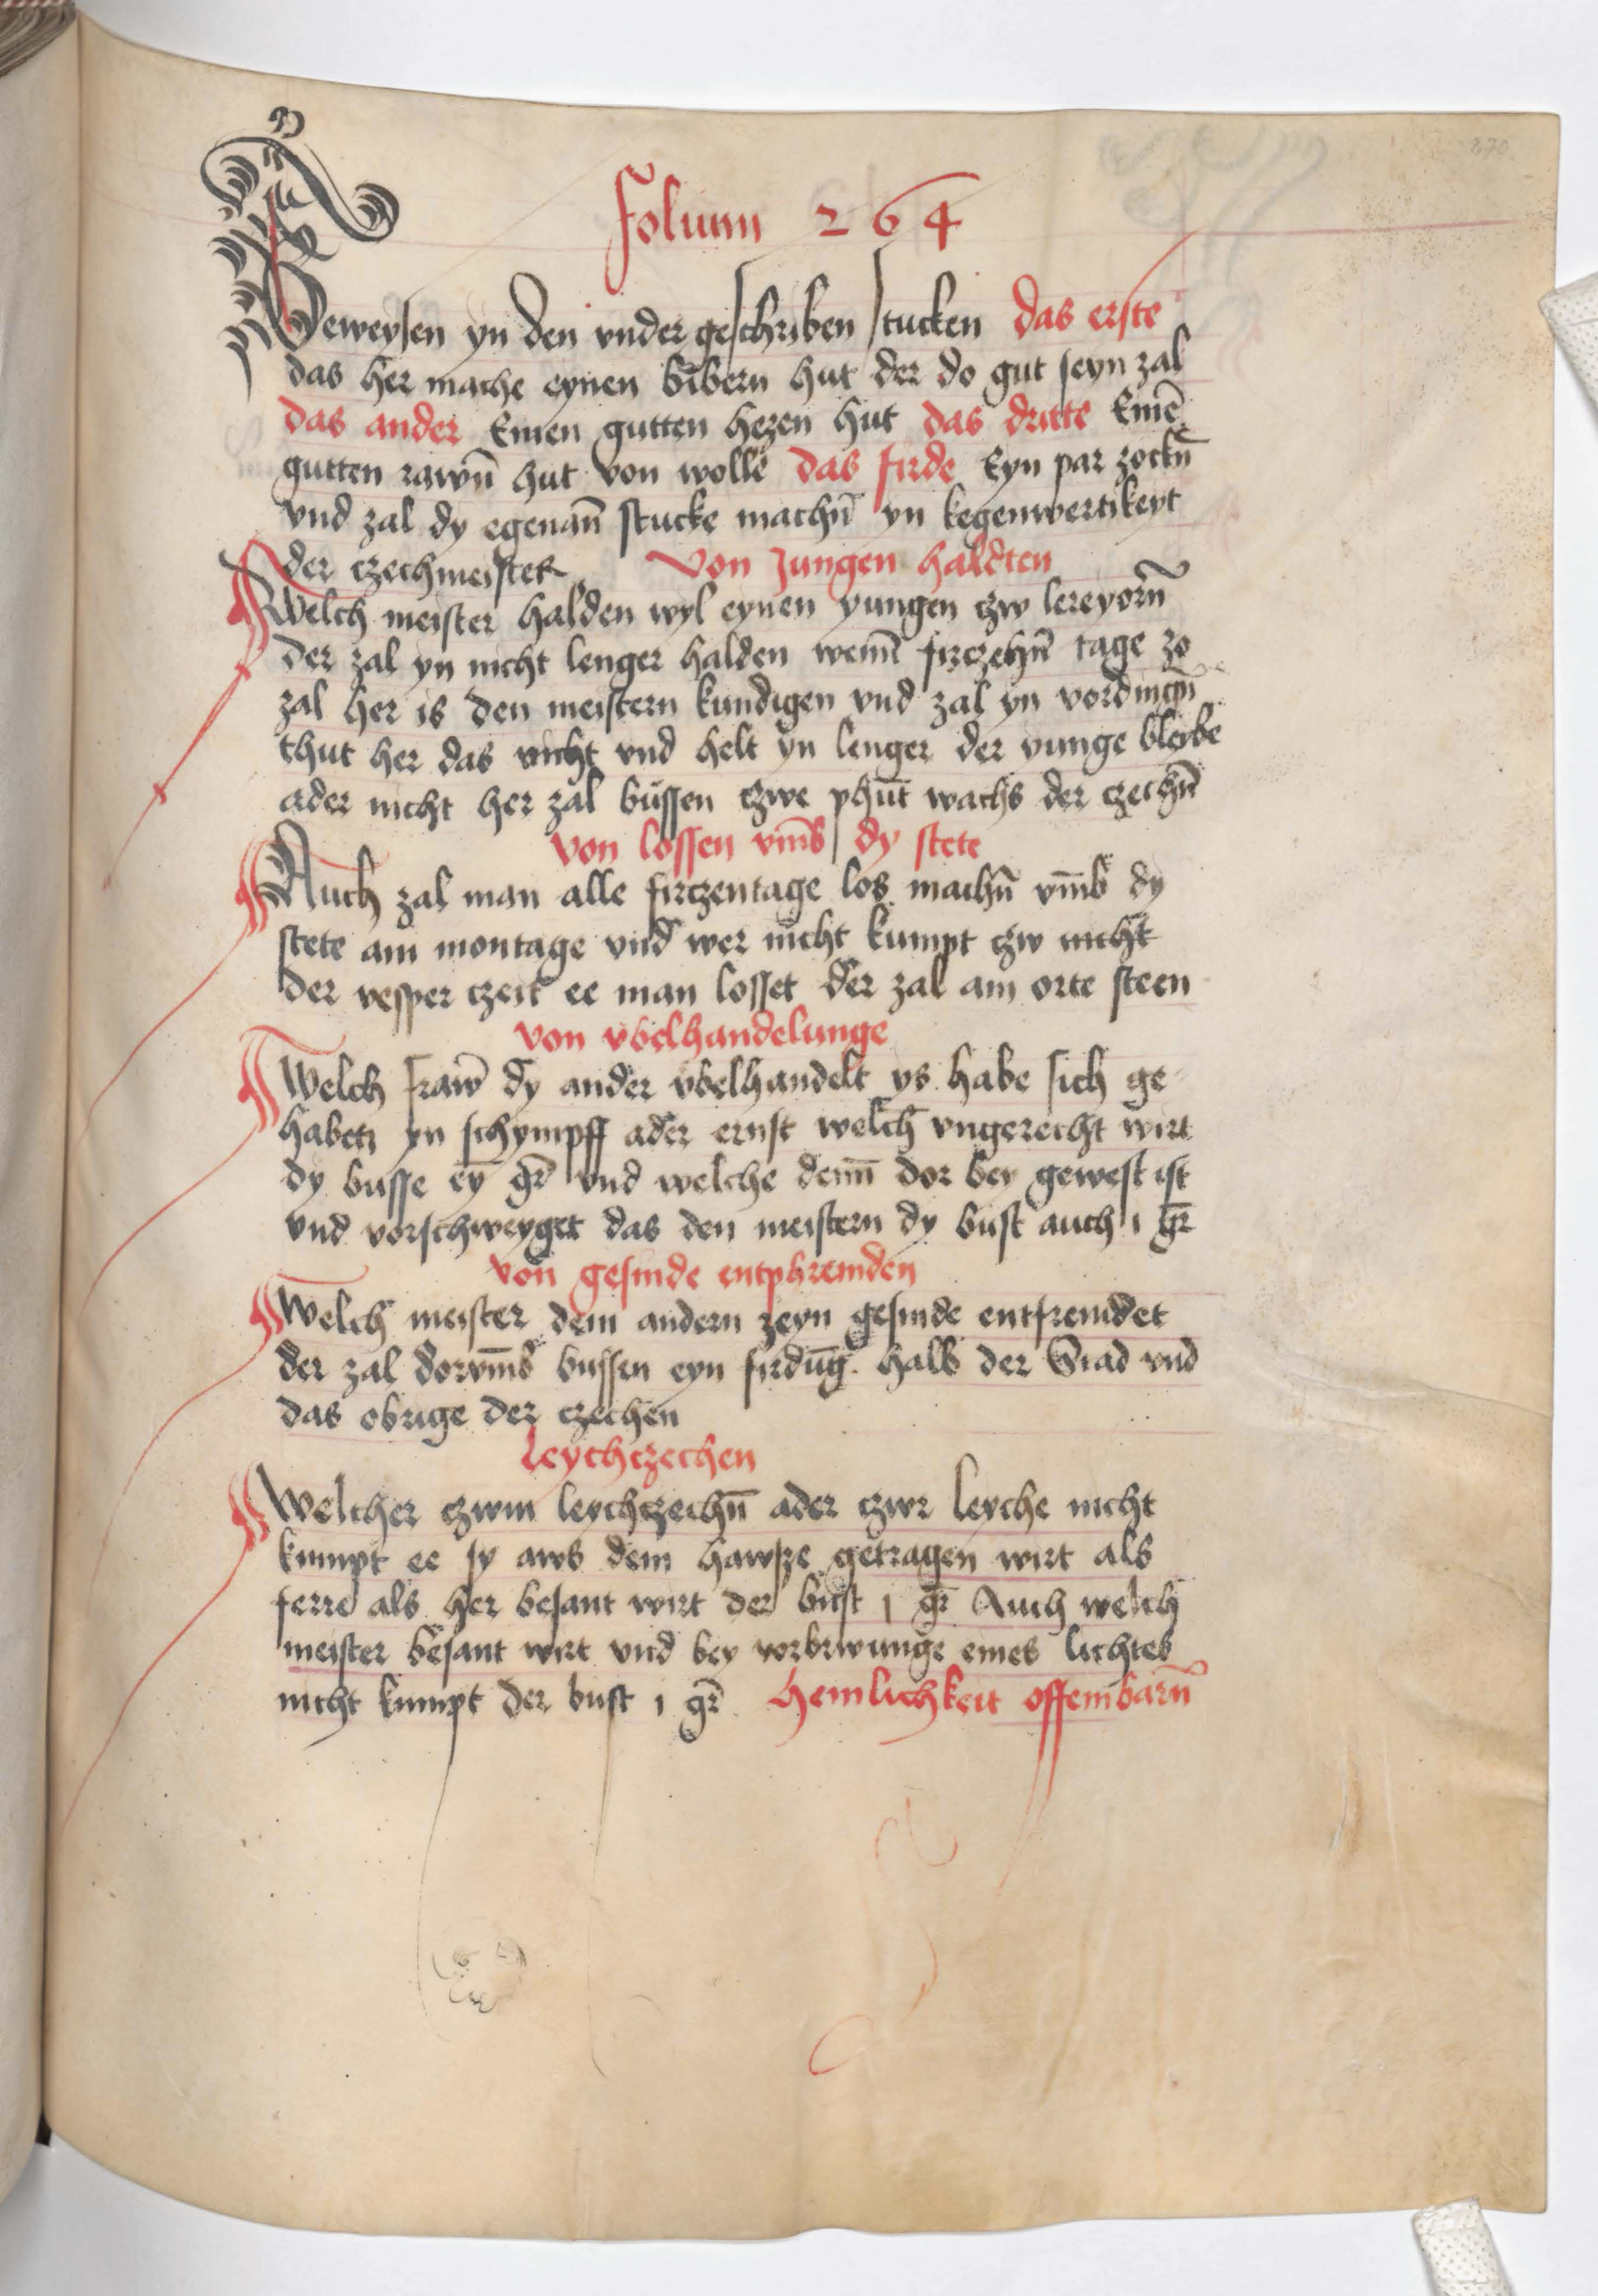 270
Folium 264
Beweysen yn den vnder geschriben stucken das erste
das her mache eynen bibern hut der do gut seyn zal
das ander Einen gutten hezen hut das dritte Einē
gutten rawñ hut von wolle das firde Eyn par zockñ
vnd zal dy egenañ stucke machñ yn kegenwertikeyt
der czechmeister Von Jungen haldten
Welch meister halden wyl eynen yungen czw lereyorñ
der zal yn nicht lenger halden wenñ firczehñ tage zo
zal her is den meistern kundigen vnd zal yn vordingñ
thut her das nicht vnd helt yn lenger der yunge bleibe
ader nicht her zal büssen czwe phūt wachs der czechñ
von lossen vm̄b dy stete
Auch zal man alle firczentage los machñ vm̄b dy
stete am montage vnd wer nicht kumpt czw nicht
der vesper czeit ee man losset der zal am orte steen
von vbelhandelunge
Welch fraw̄ dy ander vbelhandelt ys habe sich ge
habetz yn schympff ader ernst welch vngerecht wirt
dy busse eȳ gr̄ vnd welche denñ dor bey gewest ist
vnd vorschweyget das den meistern dy bust auch i gr̄
von gesinde entphremden
Welch meister dem andern zeyn gesinde entfremdet
der zal dorvm̄b bussen eyn firdūg. halb der Stad vnd
das obrige der czechen
leychczechen
Welcher czwm leychczechñ ader czwr leyche nicht
kumpt ee sy aws dem hawsze getragen wirt als
ferre als her besant wirt der bust i gr̄ Auch welch
meister besant wirt vnd bey vorbrwunge eines lichtes
nicht kumpt der bust i gr̄ Heimlichkeit offembarñ